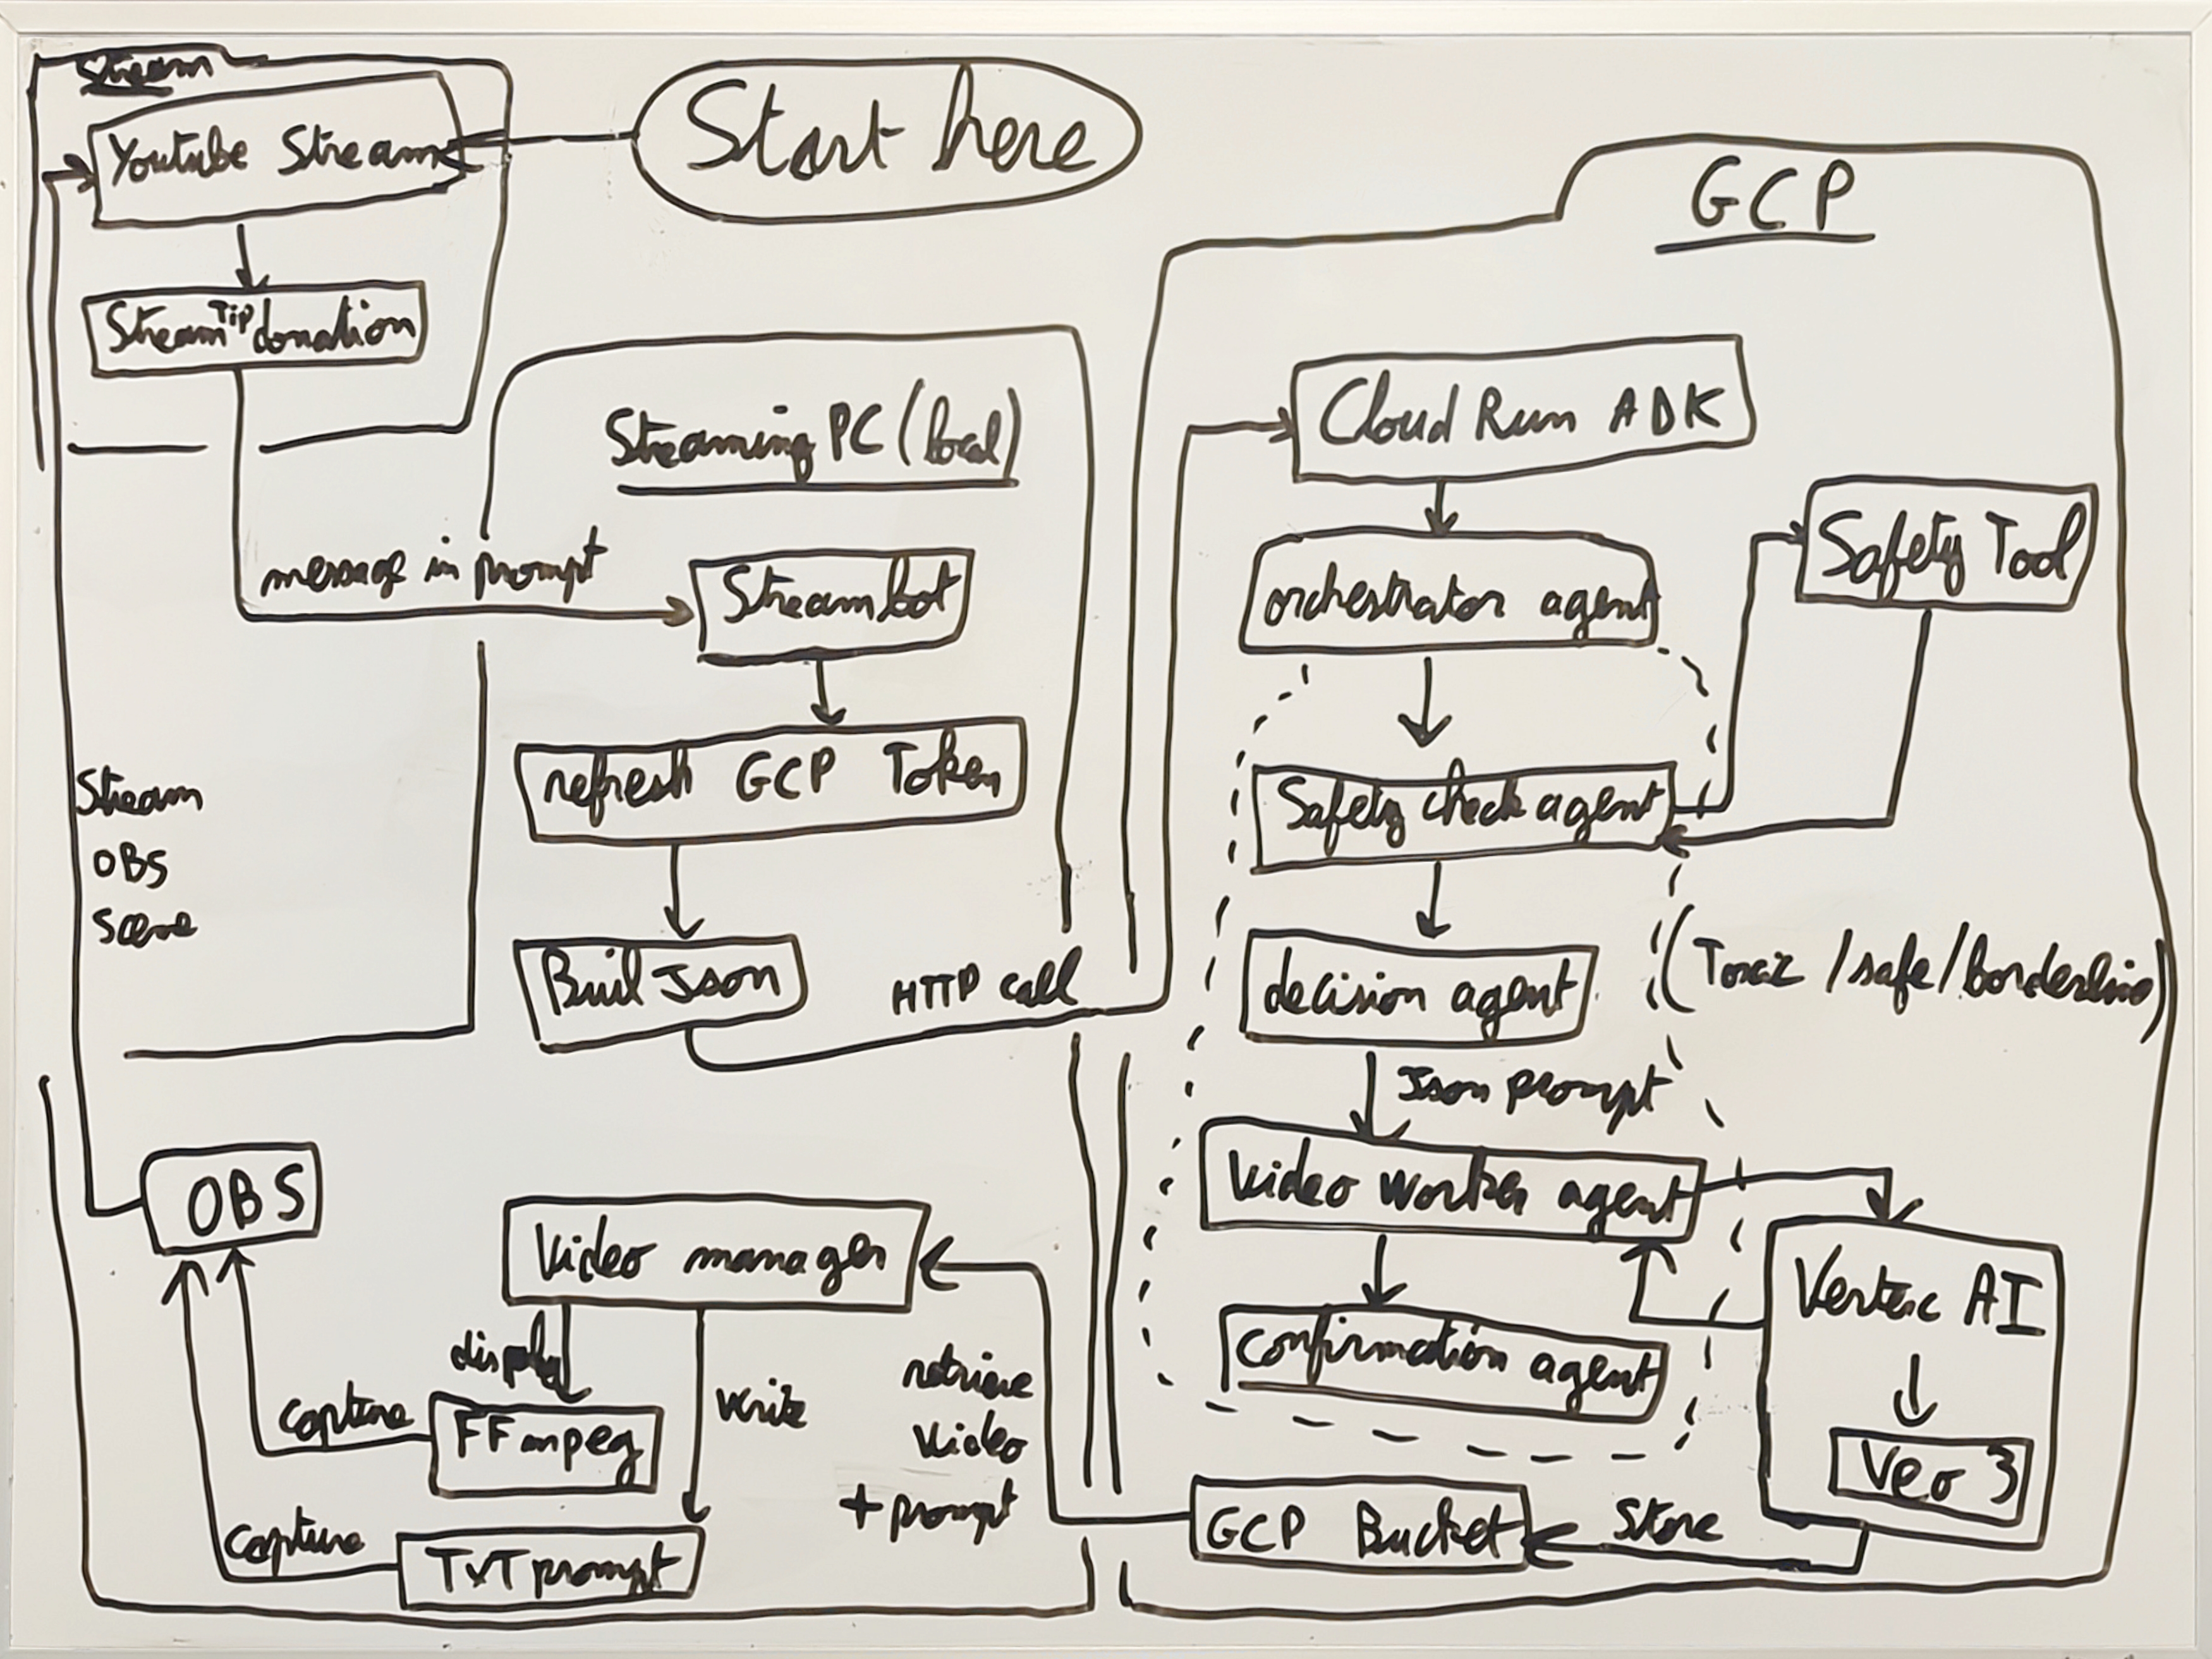 Stream
Youtube Stream
Start here
Stream Tip donation
message in prompt
Streaming PC (local)
Streambot
refresh GCP Token
Buil Json
HTTP call
GCP
Cloud Run ADK
orchestrator agent
Safety Tool
Safety check agent
(Toxic /safe/borderline)
decision agent
Json prompt
Video worker agent
Vertex AI
Veo 3
confirmation agent
Store
GCP Bucket
retrieve
video
+ prompt
Video manager
display
write
FFmpeg
TxT prompt
capture
capture
OBS
Stream
OBS
scene